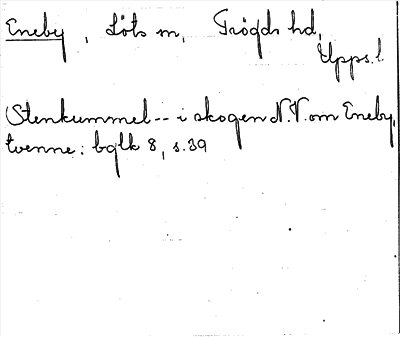 Eneby, Löts sn, Trögds hd,
Upps. l
Stenkummel -- i skogen N.V. om Eneby,
tvenne: bglk 8, s. 39